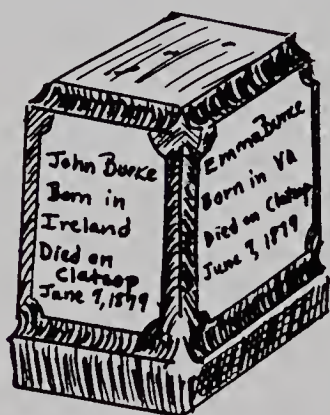 John Burke
Born in
Ireland
Died on
Clatsop
June 9, 1879
Emma Burke
Born in VA
Died on Clatsop
June 9, 1879